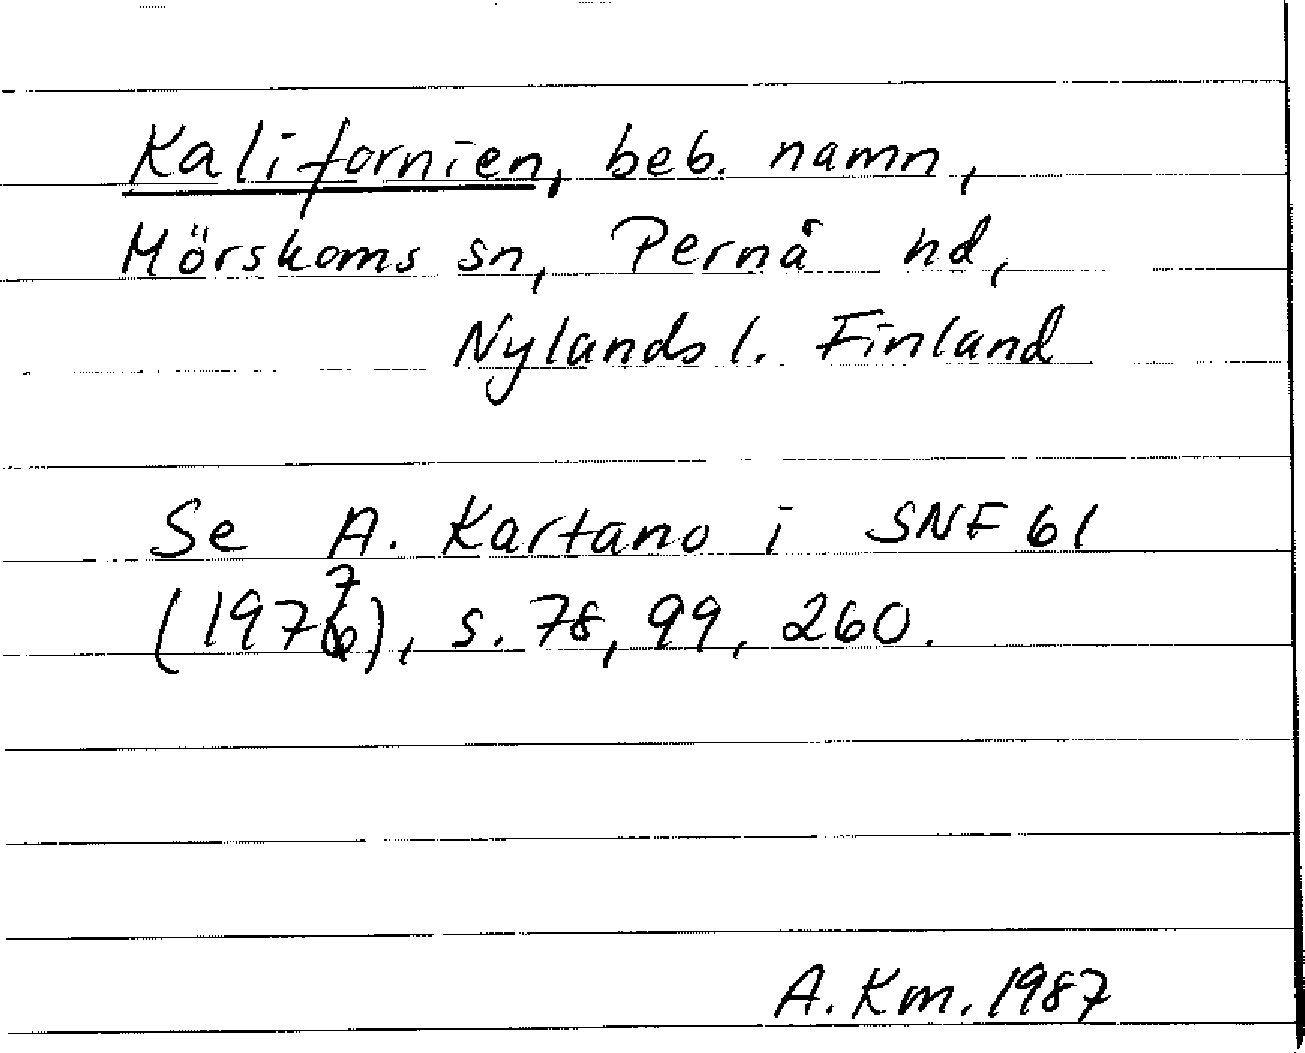 Kalifornien, beb. namn,
Mörskoms sn, Pernå hd,
Nylands l. Finland
Se A. Kartano i SNF 61
(1977), s. 78, 99, 260.
A. Km. 1987